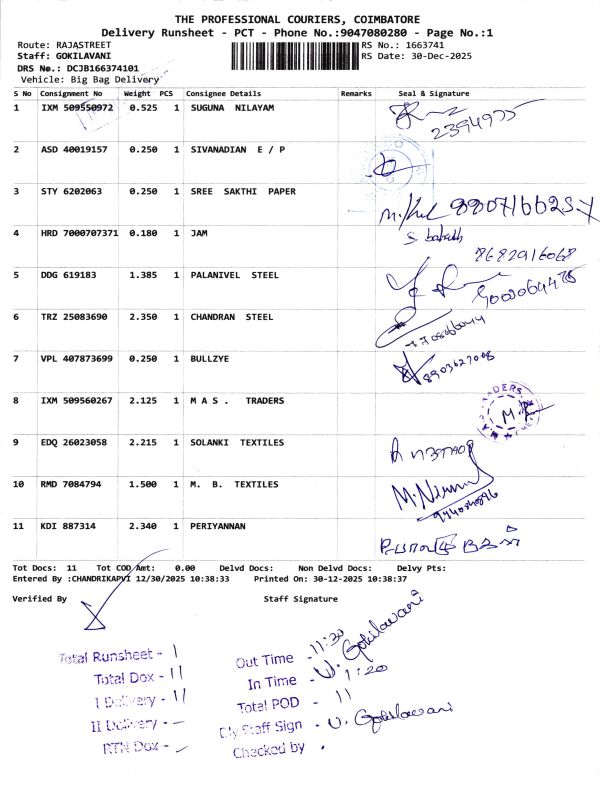 THE PROFESSIONAL COURIERS, COIMBATORE
Delivery Runsheet - PCT - Phone No.:9047080280 - Page No.:1
Route: RAJASTREET RS No.: 1663741
Staff: GOKILAVANI RS Date: 30-Dec-2025
DRS No.: DCJB166374101
Vehicle: Big Bag Delivery
S No Consignment No Weight PCS Consignee Details Remarks Seal & Signature
1 IXM 509550972 0.525 1 SUGUNA NILAYAM
2394975
2 ASD 40019157 0.250 1 SIVANADIAN E / P
3 STY 6202063 0.250 1 SREE SAKTHI PAPER
4 HRD 7000707371 0.180 1 JAM
8682916068
5 DDG 619183 1.385 1 PALANIVEL STEEL
6 TRZ 25083690 2.350 1 CHANDRAN STEEL
7 VPL 407873699 0.250 1 BULLZYE
8903627008
8 IXM 509560267 2.125 1 M A S . TRADERS
9 EDQ 26023058 2.215 1 SOLANKI TEXTILES
10 RMD 7084794 1.500 1 M. B. TEXTILES
11 KDI 887314 2.340 1 PERIYANNAN
Tot Docs: 11 Tot COD Amt: 0.00 Delvd Docs: Non Delvd Docs: Delvy Pts:
Entered By :CHANDRIKAPVI 12/30/2025 10:38:33 Printed On: 30-12-2025 10:38:37
Verified By Staff Signature
Total Runsheet - 1 Out Time - 11:30
Total Dox - 11 In Time - 1:20
I Delivery - 11 Total POD - 11
II Delivery - — Dly Staff Sign - V. Gokilavani
RTN Dox - — Checked by .
V. Gokilavani